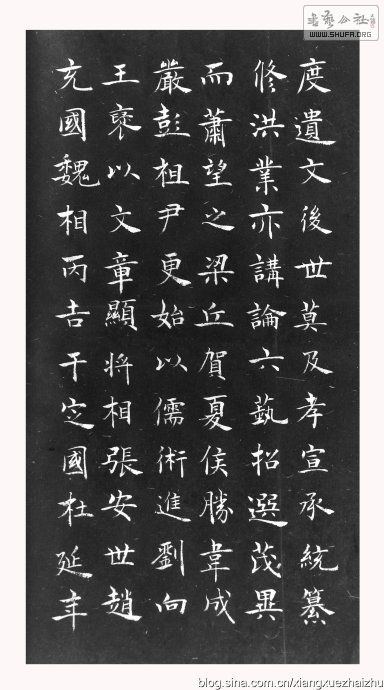 度遺文後世莫及孝宣承統纂
修洪業亦講論六藝招選茂異
而蕭望之梁丘賀夏侯勝韋成
嚴彭祖尹更始以儒術進劉向
王褒以文章顯將相張安世趙
充國魏相丙吉于定國杜延年
書藝公社
WWW.SHUFA.ORG
blog.sina.com.cn/xiangxuezhaizhu